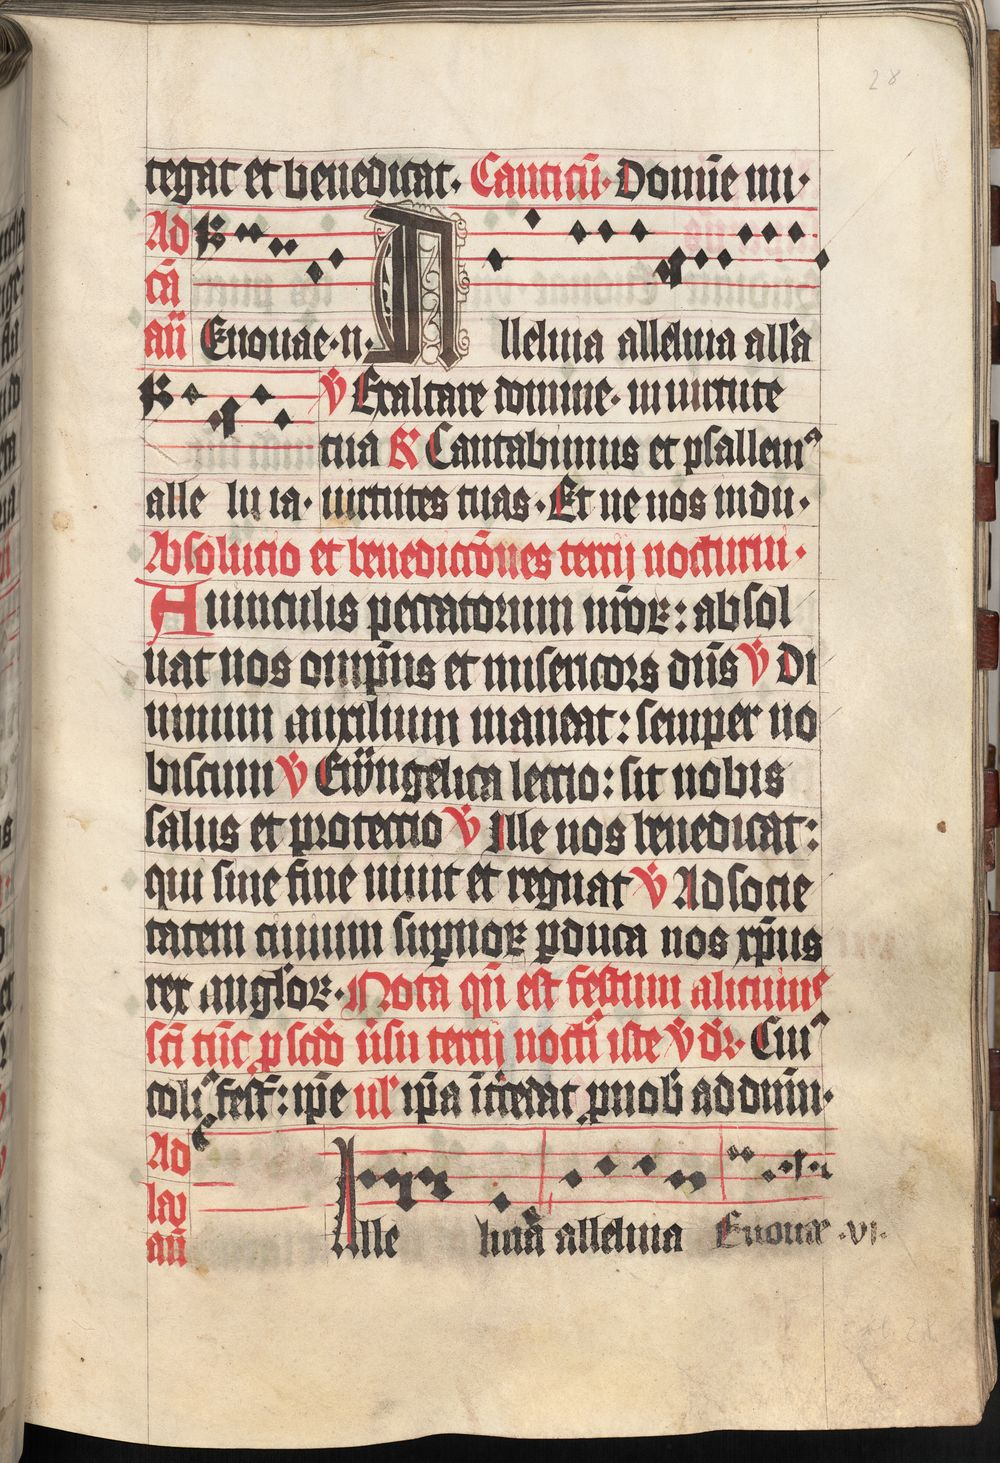 28
tegat et benedicat. Canticū. Domīe mi.
Ad
cā
añ Euouae. ii. Alleluia alleluia all'a
℣ Exaltare domine. in uirtute
tua ℟ Cantabimus et psallemꝰ
alle lu ia. uirtutes tuas. Et ne nos indu.
Absolucio et benedictōnes tercij nocturni.
A uinculis peccatorum nr̄oꝝ: absol
uat nos omp̄ns et misericors dn̄s ℣ Di
uinum auxilium maneat: semper no
biscum ℣ Ewͣngelica lectio: sit nobis
salus et protectio ℣ Ille nos benedicat:
qui sine fine uiuit et regnat ℣ Ad socie
tatem ciuium sup̄noꝝ ꝑducat nos xp̄us
rex angl'oꝝ. Nota qn̄ est festum alicuiuꝰ
sc̄i tūc ꝑ scd̄o ūsu tercij noctꝰi iste ℣ dr̄. Cuiꝰ
colīꝰ fest̄: ip̄e ul' ip̄a īt̄cedat ꝓ nob̄ ad dn̄m.
Ad
lau
añ Alle luia alleluia Euouae. vi.